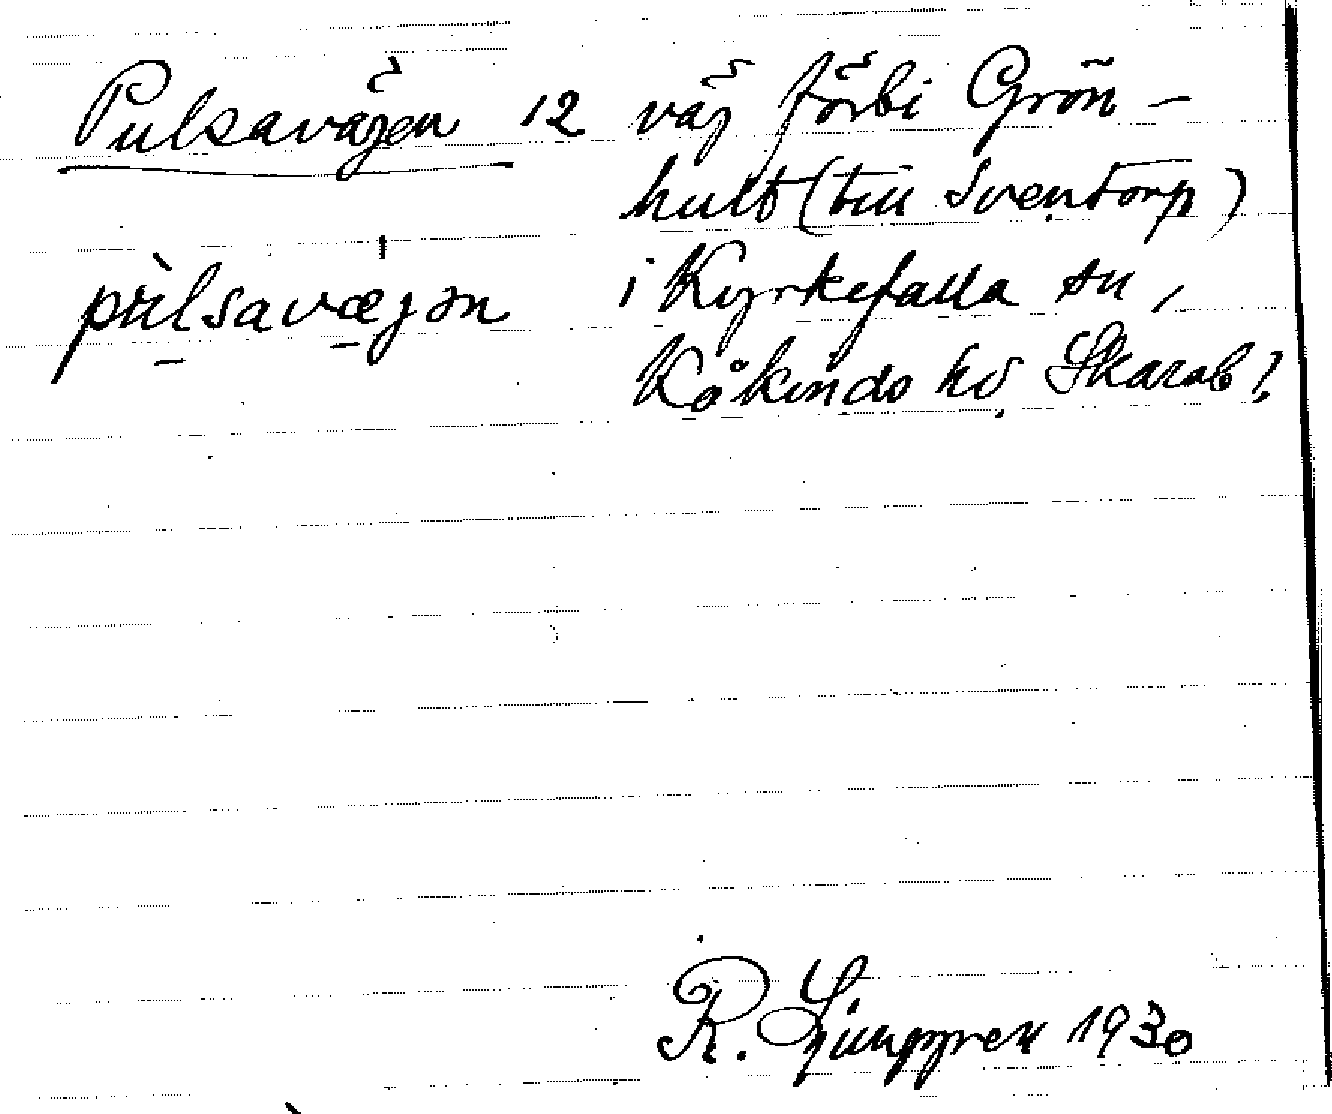 Pulsavägen 12 väg förbi Grön-
hult (till Sventorp)
pùlsavægən i Kyrkefalla sn,
Kåkinds hd, Skarab l.
R. Ljunggren 1930